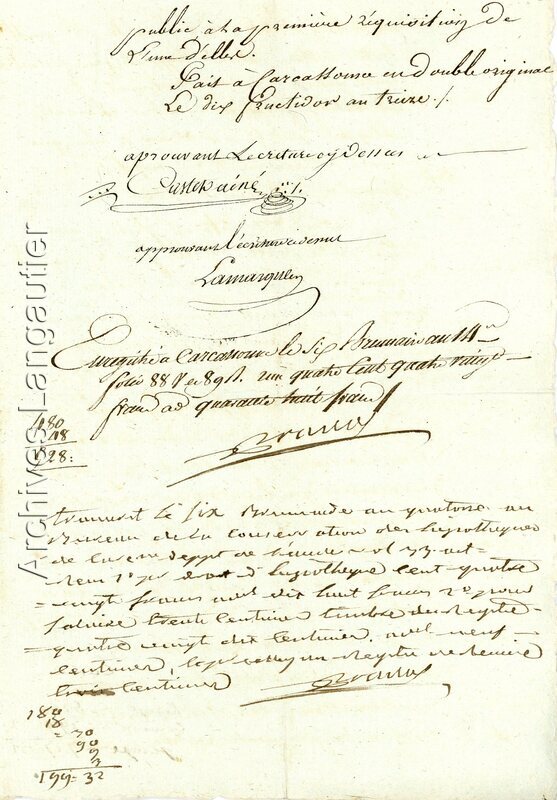 public, a la première réquisition de
L'une d'elles.
Fait à Carcassonne en double original
Le dix fructidor an treize ./.
aprouvant Lecriture cy Dessus
ainé
approuvant l'écriture ci dessus
Lamarque
Enregistré a Carcassonne le six Brumaire an 14
folio 88 V et 89 R. reçu quatre Cent quatre vingt
francs et quarante huit francs
480
48
528:
transcrit le six Brumaire an quatorze au
Bureau de la Conservation des hypotheques
de vol 33 art
1° pr droit d'hypothèque Cent quatre
vingt francs dix huit francs 2° pour
salaire trente Centimes timbre du Registre
quatre vingt dix Centimes, neuf
Centimes, Registre de remise
trois Centimes
180
18
= 30
90
9
3
199=32
Archives Langautier